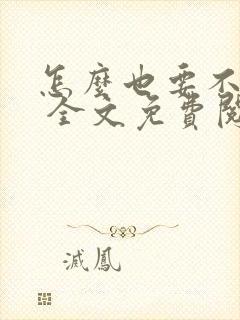 怎麼也要不
全文免費閱
滅鳳